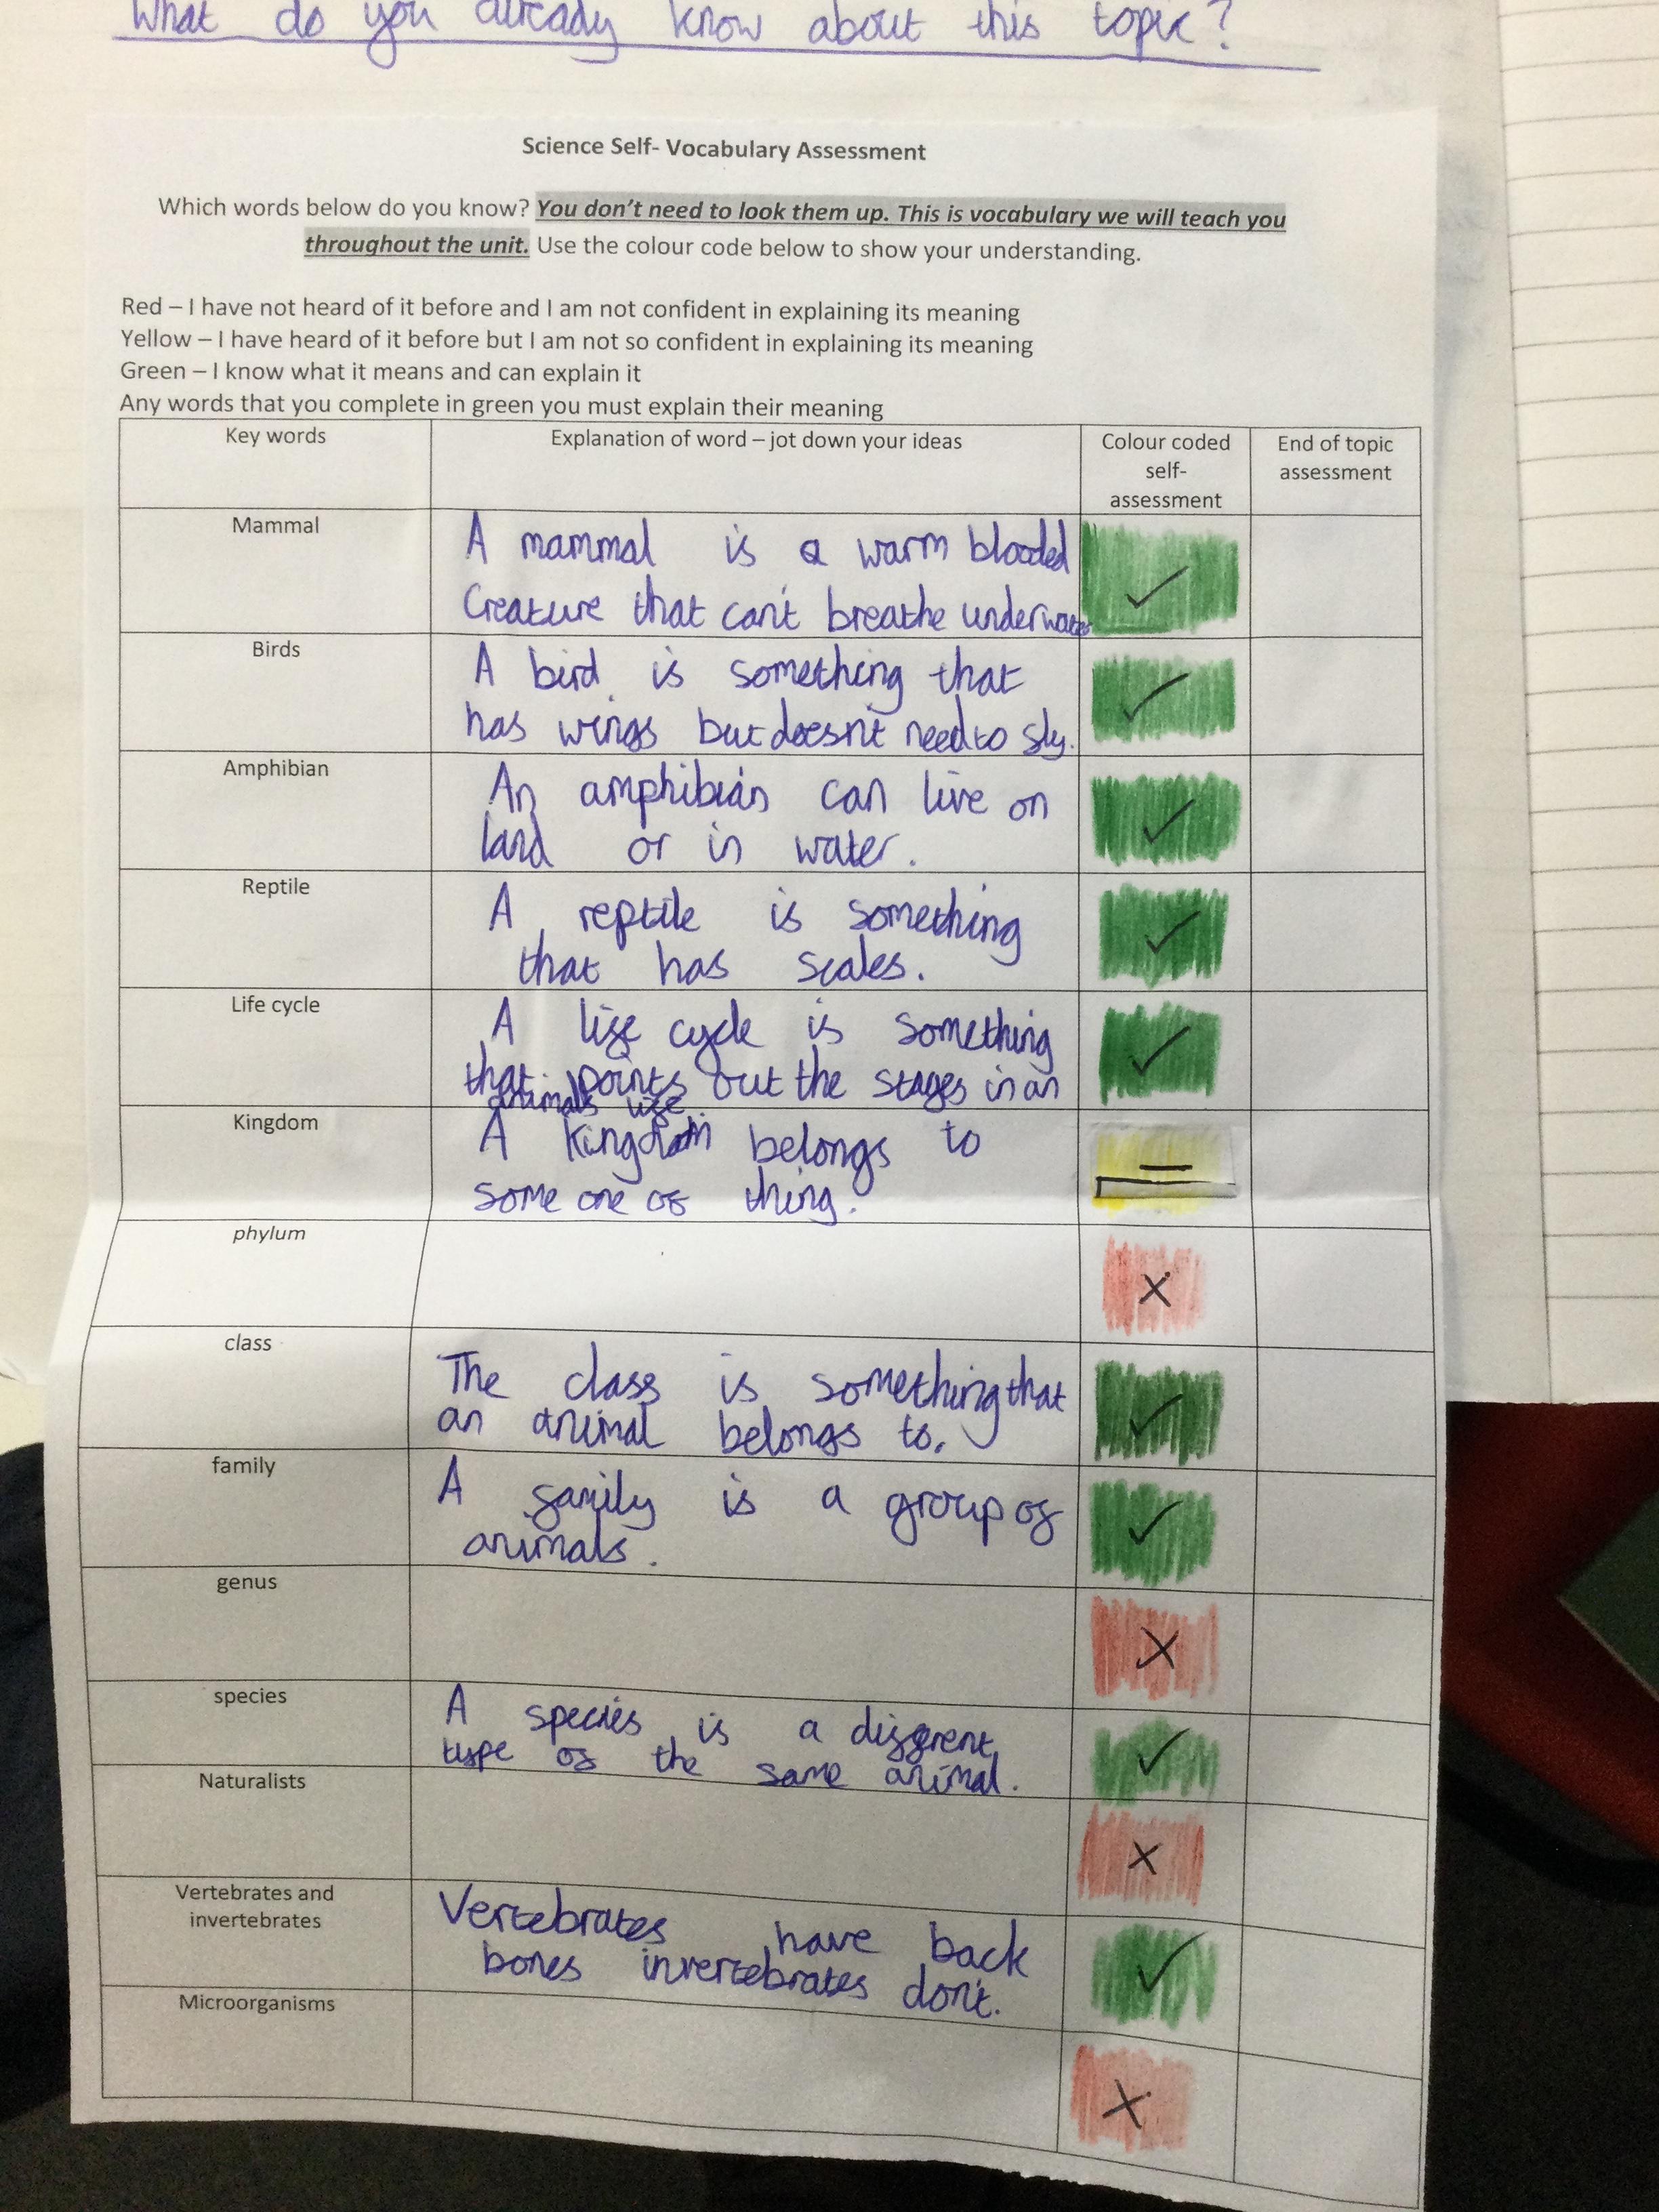 What do you already know about this topic?
Science Self- Vocabulary Assessment
Which words below do you know? You don't need to look them up. This is vocabulary we will teach you
throughout the unit. Use the colour code below to show your understanding.
Red – I have not heard of it before and I am not confident in explaining its meaning
Yellow – I have heard of it before but I am not so confident in explaining its meaning
Green – I know what it means and can explain it
Any words that you complete in green you must explain their meaning
Key words
Explanation of word – jot down your ideas
Colour coded
self-
assessment
End of topic
assessment
Mammal
A mammal is a warm blooded
Creature that can't breathe underwater
Birds
A bird is something that
has wings but doesn't need to fly.
Amphibian
An amphibian can live on
land or in water.
Reptile
A reptile is something
that has scales.
Life cycle
A life cycle is something
that points out the stages in an
animals life.
Kingdom
A kingdom belongs to
some one of thing.
phylum
class
The class is something that
an animal belongs to.
family
A family is a group of
animals.
genus
species
A species is a different
type of the same animal.
Naturalists
Vertebrates and
invertebrates
Vertebrates have back
bones invertebrates don't.
Microorganisms